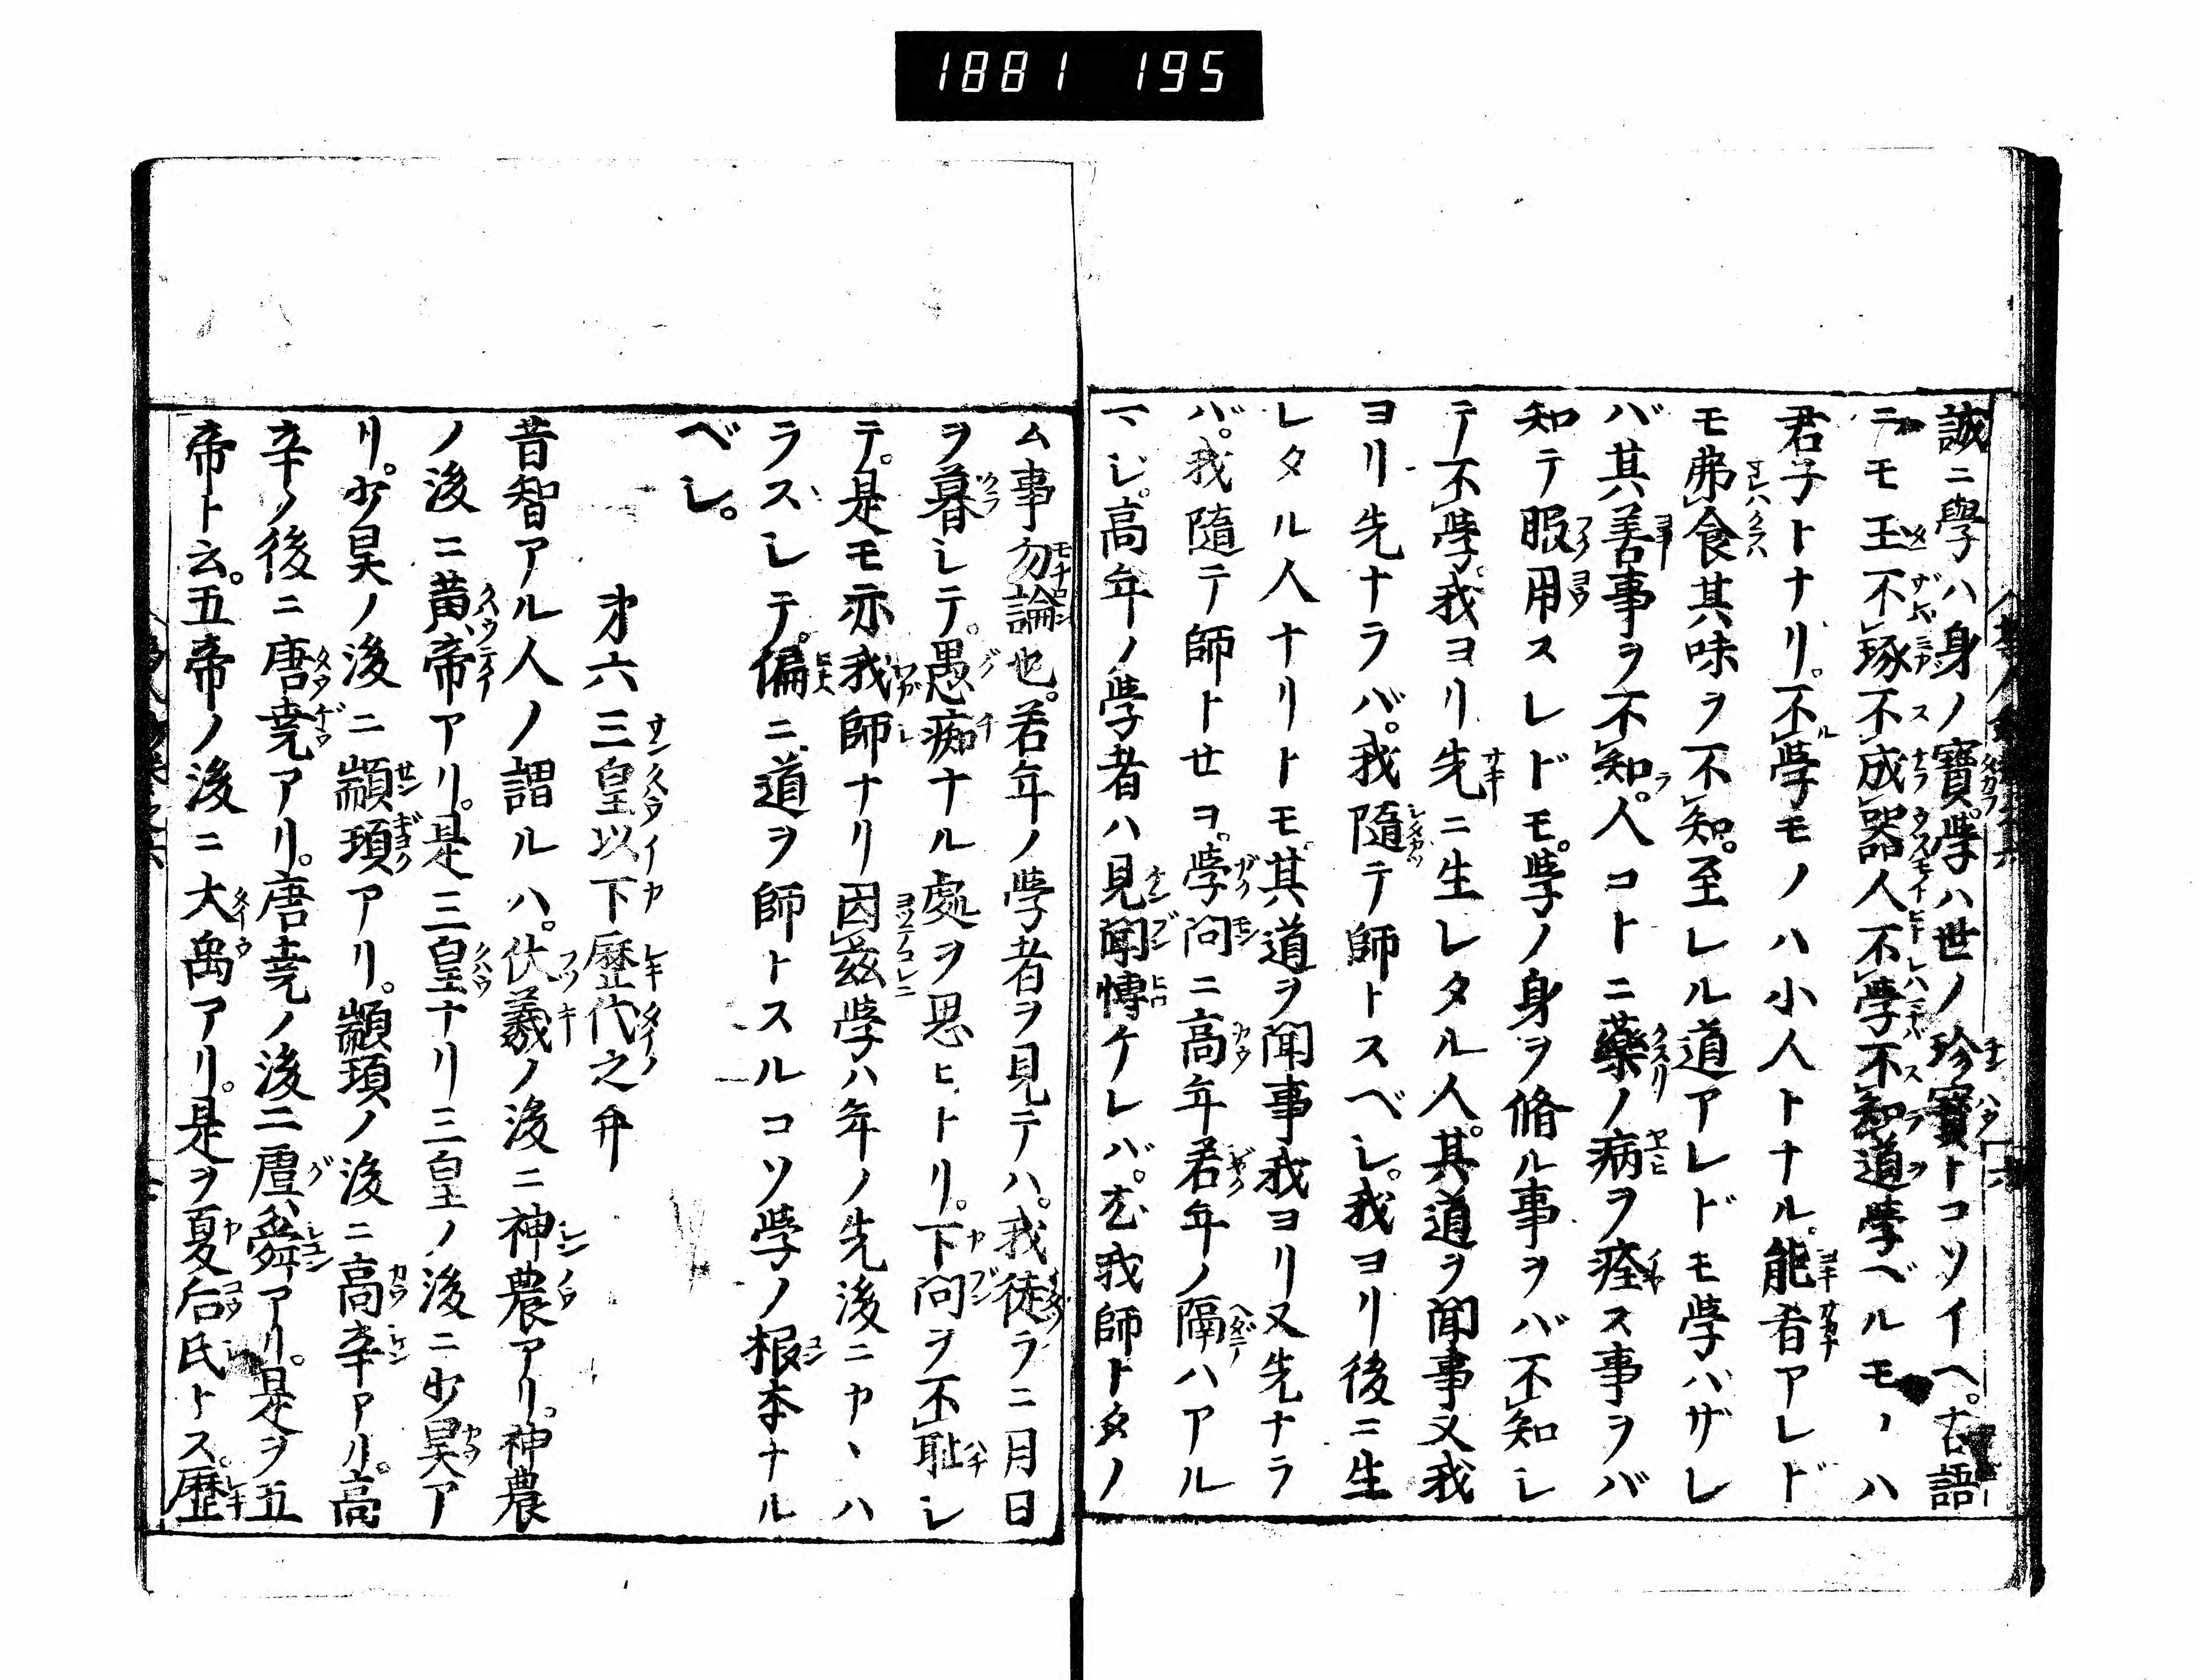 1881 195
誠ニ學ハ身ノ寶學ハ世ノ珍寶トコソイヘ。古語
ニモ玉不琢不成器人不學不知道學ベルモノハ
君子トナリ。不學モノハ小人トナル。能肴アレド
モ弗食其味ヲ不知。至レル道アレドモ学バザレ
バ其善事ヲ不知。人コトニ藥ノ病ヲ痊ス事ヲバ
知テ服用スレドモ。学ノ身ヲ脩ル事ヲバ不知レ
テ不學。我ヨリ先ニ生レタル人。其道ヲ聞事又我
ヨリ先ナラバ。我隨テ師トスベシ。我ヨリ後ニ生
レタル人ナリトモ。其道ヲ聞事我ヨリ又先ナラ
バ。我隨テ師トセヨ。學問ニ高年若年ノ隔ハアル
マジ。高年ノ學者ハ見聞博ケレバ。尤我師トタノ
ム事勿論也。若年ノ學者ヲ見テハ。我徒ラニ月日
ヲ暮シテ。愚痴ナル處ヲ思ヒトリ。下問ヲ不耻シ
テ。是モ亦我師ナリ因茲學ハ年ノ先後ニカヽハ
ラスシテ。偏ニ道ヲ師トスルコソ学ノ根本ナル
ベシ。
才六三皇以下歷代之弁
昔智アル人ノ謂ルハ。伏羲ノ後ニ神農アリ。神農
ノ後ニ黄帝アリ。是三皇ナリ三皇ノ後ニ少昊ア
リ。少昊ノ後ニ顓頊アリ。顓頊ノ後ニ高辛アリ。高
辛ノ後ニ唐堯アリ。唐堯ノ後ニ虞舜アリ。是ヲ五
帝ト云。五帝ノ後ニ大禹アリ。是ヲ夏后氏トス歷